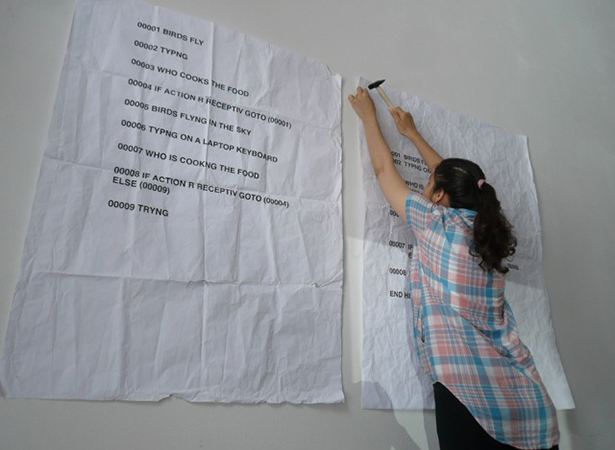 00001 BIRDS FLY
00002 TYPNG
00003 WHO COOKS THE FOOD
00004 IF ACTION R RECEPTIV GOTO (00001)
00005 BIRDS FLYNG IN THE SKY
00006 TYPNG ON A LAPTOP KEYBOARD
00007 WHO IS COOKNG THE FOOD
00008 IF ACTION R RECEPTIV GOTO (00004)
ELSE (00009)
00009 TRYNG
BIRDS
TYPNG
WHO
00007 IF
00008
END